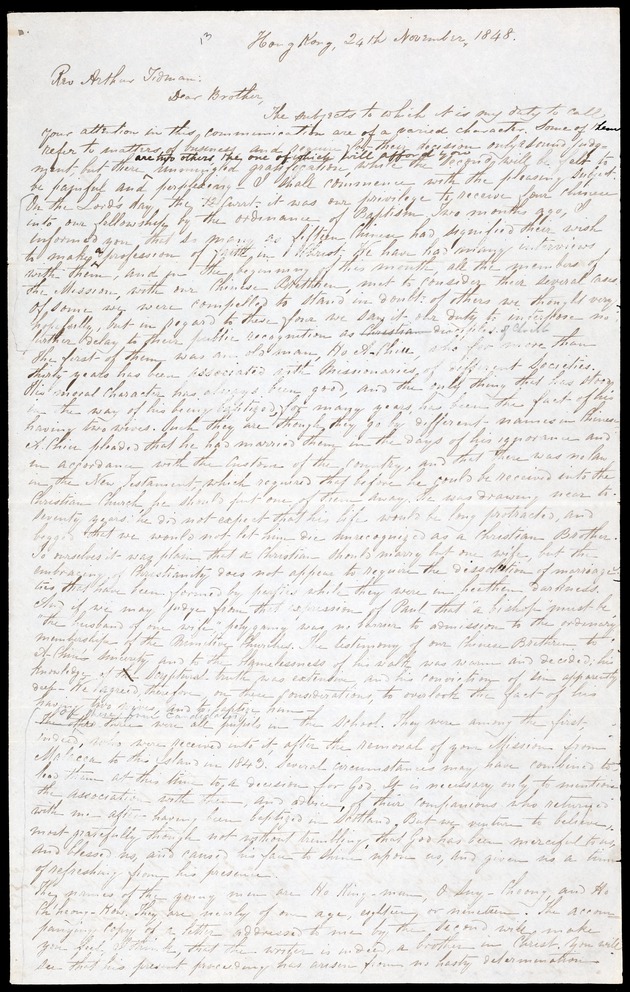 Hong Kong, 24th November, 1848.
Rev Arthur Tidman:
Dear Brother,
The subjects to which it is my duty to call
your attention in this communication are of a varied character. Some of them
refer to matters of business and require for their decision only sound judg-
are two others the one of which will afford you
ment, but there unmingled gratification, while the second will be felt to
be painful and perplexing. I shall commence with the pleasing subject.
On the Lord's day, the curr.t it was our privilege to receive four Chinese
into our fellowship by the ordinance of Baptism. Two months ago, I
informed you that so many as fifteen Chinese had signified their wish
to make a profession of faith in Christ. We have had many interviews
with them, and in the beginning of this month, all the members of
the Mission, with our Chinese Brethren, met to consider their several cases.
Of some we were compelled to stand in doubt: of others we thought very
hopefully, but in regard to these four we saw it our duty to interpose no
further delay to their public recognition as Christian disciples of Christ
The first of them was an old man, Ho A-Chee, who for more than
thirty years has been associated with Missionaries, of different Societies.
His moral character has always been good, and the only thing that has stood
in the way of his being baptized for many years, has been the fact of his
having two wives. Such they are though they go by different names in Chinese
A-Chee pleaded that he had married them in the days of his ignorance and
in accordance with the customs of the country, and that there was no law
in the New Testament which required that before he could be received into the
Christian Church he should put one of them away. He was drawing near to
seventy years: he did not expect that his life would be long protracted, and
begged that we would not let him die unrecognized as a Christian Brother.
To ourselves it was plain that a Christian should marry but one wife, but the
embracing of Christianity does not appear to require the dissolution of marriage
ties that have been formed by parties while they were in heathen darkness.
And if we may judge from that expression of Paul that "a bishop must be
the husband of one wife" polygamy was no barrier to admission to the ordinary
membership of the Primitive Churches. The testimony of our Chinese Brethren to
A-Chee's sincerity and to the blamelessness of his walk was warm and decided; his
knowledge of Scriptural truth was extensive and his conviction of sin apparently
deep. We agreed, therefore, on these considerations, to overlook the fact of his
having two wives, and to baptize him.
The other three were all pupils in the School. They were among the first,
indeed, who were received into it after the removal of your Mission from
Malacca to this Island in 1843. Several circumstances may have combined to
lead them at this time to a decision for God. It is necessary only to mention
the association with them, and advice, of their companions who returned
with me after having been baptized in Scotland. But we venture to believe,
most gratefully though not without trembling, that God has been merciful to us,
and blessed us, and caused his face to shine upon us, and given us a time
of refreshing from his presence.
The names of the young men are Ho King-mun, and Ho
They are nearly of one age, eighteen or nineteen. The accom-
panying copy of a letter addressed to me by the second will make
you feel, I think, that the writer is indeed, a brother in Christ. You will
see that his present proceeding has arisen from no hasty determination